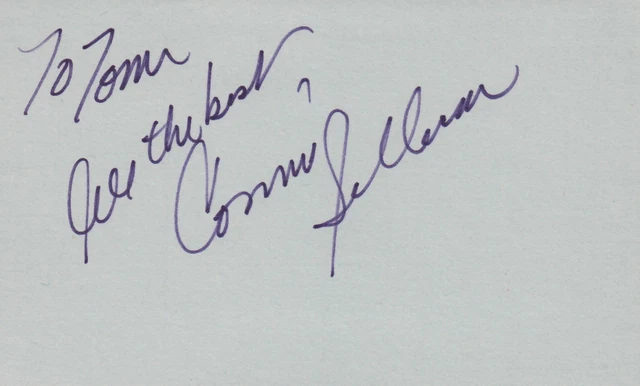 To Tom
All the best,
Connie Sellecca